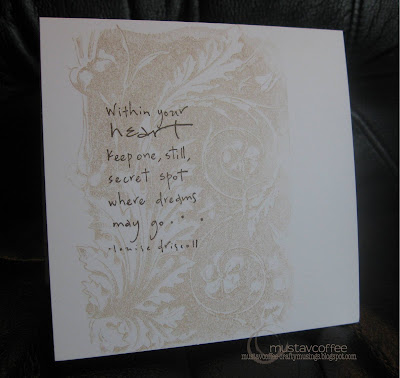 Within your
heart
keep one, still,
secret spot
where dreams
may go . . .
-louise driscoll
mustavcoffee
mustavcoffee-craftymusings.blogspot.com